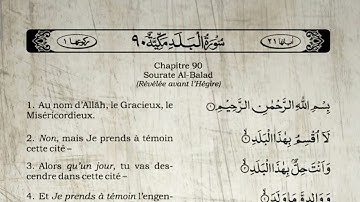 رکوعها ١ سُورَةُ الْبَلَدِ مَكِّيَّةٌ ٩٠ اٰياتها ٢١
Chapitre 90
Sourate Al-Balad
(Révélée avant l'Hégire)
1. Au nom d'Allāh, le Gracieux, le
Miséricordieux.
بِسْمِ اللّٰهِ الرَّحْمٰنِ الرَّحِيْمِ ۝
2. Non, mais Je prends à témoin
cette cité –
لَاۤ اُقْسِمُ بِهٰذَا الْبَلَدِ ۝
3. Alors qu'un jour, tu vas des-
cendre dans cette cité –
وَاَنْتَ حِلٌّۢ بِهٰذَا الْبَلَدِ ۝
4. Et Je prends à témoin l'engen-
وَوَالِدٍ وَّمَا وَلَدَ ۝